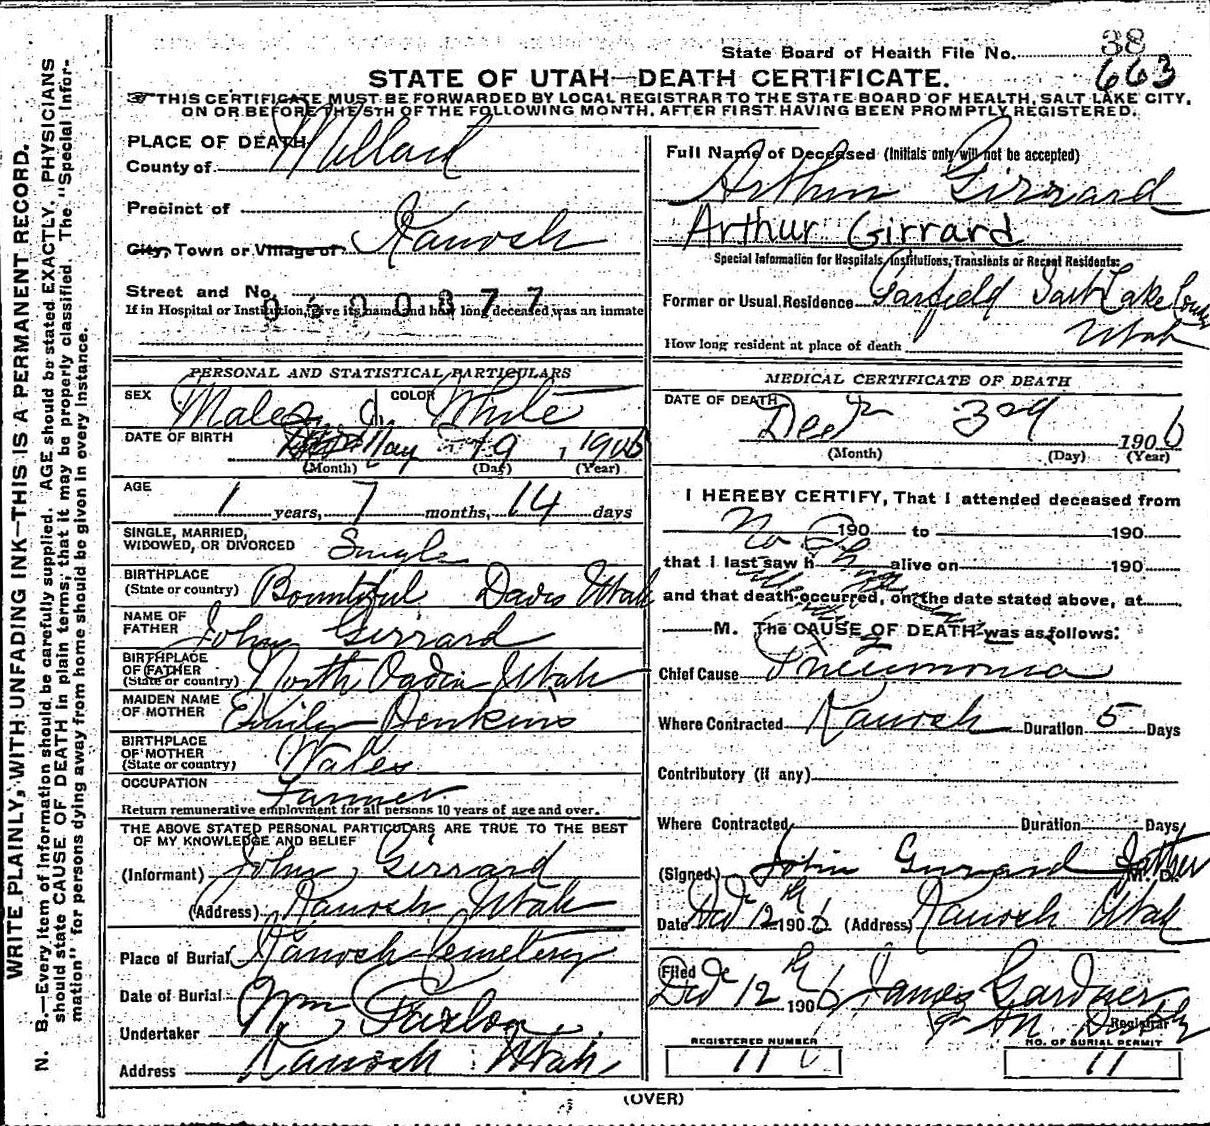 State Board of Health File No. 38
663
STATE OF UTAH—DEATH CERTIFICATE.
THIS CERTIFICATE MUST BE FORWARDED BY LOCAL REGISTRAR TO THE STATE BOARD OF HEALTH, SALT LAKE CITY,
ON OR BEFORE THE 5TH OF THE FOLLOWING MONTH, AFTER FIRST HAVING BEEN PROMPTLY REGISTERED.
WRITE PLAINLY, WITH UNFADING INK—THIS IS A PERMANENT RECORD.
N. B.—Every item of information should be carefully supplied. AGE should be stated EXACTLY. PHYSICIANS
should state CAUSE OF DEATH in plain terms, that it may be properly classified. The "Special Infor-
mation" for persons dying away from home should be given in every instance.
PLACE OF DEATH
County of Millard
Precinct of
City, Town or Village of Kanosh
Street and No.
If in Hospital or Institution, give its name and how long deceased was an inmate
PERSONAL AND STATISTICAL PARTICULARS
SEX Male COLOR White
DATE OF BIRTH May 19, 190
(Month) (Day) (Year)
AGE
1 years, 7 months, 14 days
SINGLE, MARRIED,
WIDOWED, OR DIVORCED Single
BIRTHPLACE
(State or country) Bountiful Davis Utah
NAME OF
FATHER John Girrard
BIRTHPLACE
OF FATHER
(State or country) North Ogden Utah
MAIDEN NAME
OF MOTHER Emily Jenkins
BIRTHPLACE
OF MOTHER
(State or country) Wales
OCCUPATION Farmer
Return remunerative employment for all persons 10 years of age and over.
THE ABOVE STATED PERSONAL PARTICULARS ARE TRUE TO THE BEST
OF MY KNOWLEDGE AND BELIEF
(Informant) John Girrard
(Address) Kanosh Utah
Place of Burial Kanosh Cemetery
Date of Burial
Undertaker Wm Paxton
Address Kanosh Utah
Full Name of Deceased (Initials only will not be accepted)
Arthur Girrard
Arthur Girrard
Special Information for Hospitals, Institutions, Transients or Recent Residents:
Former or Usual Residence Garfield Salt Lake County
Utah
How long resident at place of death
MEDICAL CERTIFICATE OF DEATH
DATE OF DEATH
Dec 3rd 1906
(Month) (Day) (Year)
I HEREBY CERTIFY, That I attended deceased from
No 190 to 190
that I last saw h alive on 190
and that death occurred, on the date stated above, at
M. The CAUSE OF DEATH was as follows:
Chief Cause Pneumonia
Where Contracted Kanosh Duration 5 Days
Contributory (if any)
Where Contracted Duration Days
(Signed) John Girrard Father M. D.
Date Dec 12th 1906 (Address) Kanosh Utah
Filed
Dec 12th 1906 James Gardner
Registrar
REGISTERED NUMBER
11
NO. OF BURIAL PERMIT
11
(OVER)